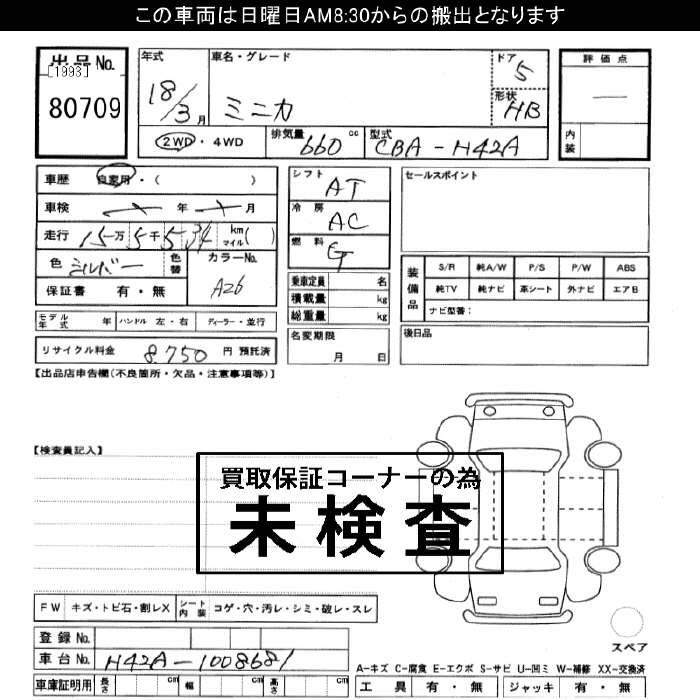 この車両は日曜日AM8:30からの搬出となります
出品No.
[1993]
80709
年式
18/3月
車名・グレード
ミニカ
ドア
5
形状
HB
2WD・4WD
排気量
660 cc
型式
CBA-H42A
評価点
―
内装
車歴 自家用・( )
車検 年 月
走行 15万5千534 km マイル( )
色 シルバー
色替
カラーNo.
A26
保証書 有・無
モデル年式 年 ハンドル 左・右 ディーラー・並行
リサイクル料金 8.750 円 預託済
シフト
AT
冷房
AC
燃料
G
乗車定員 名
積載量 kg
総重量 kg
名変期限
月 日
セールスポイント
装備品
S/R 純A/W P/S P/W ABS
純TV 純ナビ 革シート 外ナビ エアB
ナビ型番:
後日品
【出品店申告欄(不良箇所・欠品・注意事項等)】
【検査員記入】
買取保証コーナーの為
未検査
FW キズ・トビ石・割レX シート内装 コゲ・穴・汚レ・シミ・破レ・スレ
スペア
登録No.
車台No. H42A-1008681
車庫証明用 長さ cm 幅 cm 高さ cm
A-キズ C-腐食 E-エクボ S-サビ U-凹ミ W-補修 XX-交換済
工具 有・無 ジャッキ 有・無